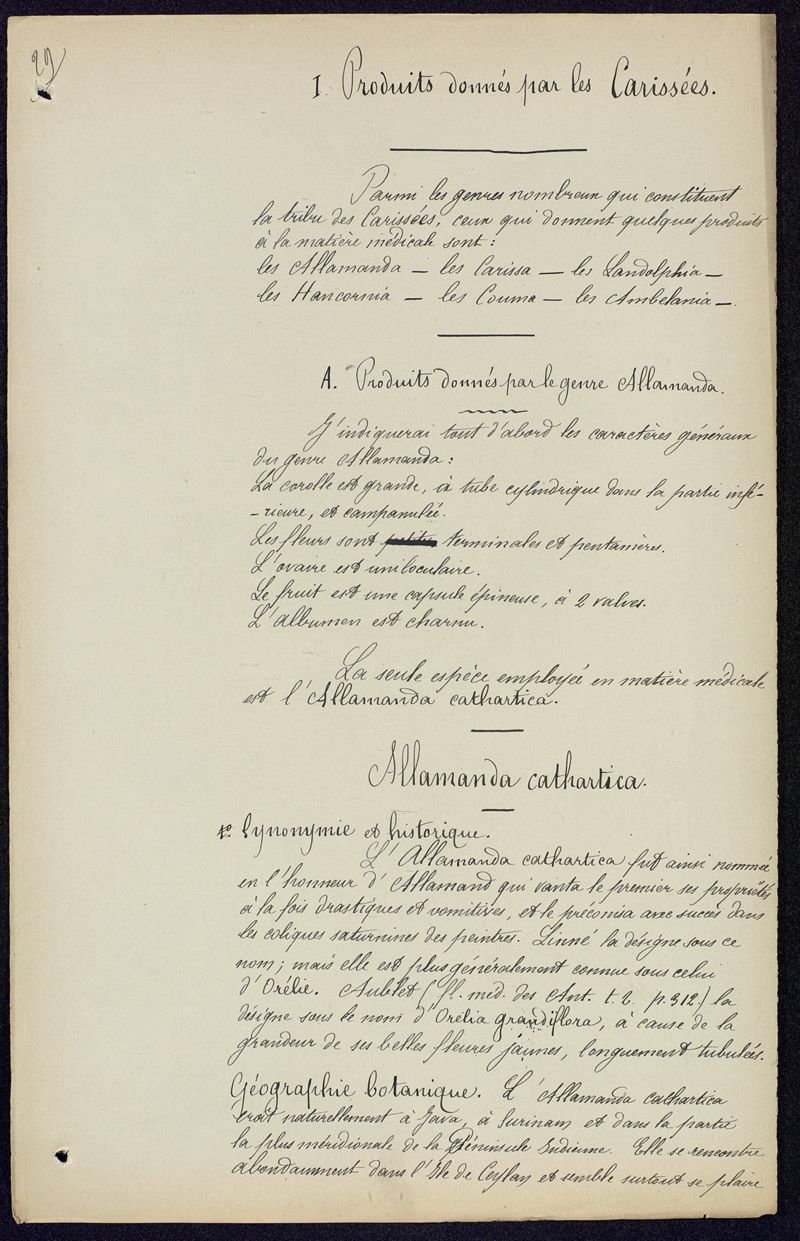 29
I. Produits donnés par les Carissées.
Parmi les genres nombreux qui constituent
la tribu des Carissées, ceux qui donnent quelques produits
à la matière médicale sont :
les Allamanda — les Carissa — les Landolphia —
les Hancornia — les Couma — les Ambelania —.
A. Produits donnés par le genre Allamanda.
J'indiquerai tout d'abord les caractères généraux
du genre Allamanda :
La corolle est grande, à tube cylindrique dans la partie infé-
-rieure, et campanulée.
Les fleurs sont terminales et pentamères.
L'ovaire est uniloculaire.
Le fruit est une capsule épineuse, à 2 valves.
L'albumen est charnu.
La seule espèce employée en matière médicale
est l'Allamanda cathartica.
Allamanda cathartica.
1º Synonymie et historique.
L'Allamanda cathartica fut ainsi nommée
en l'honneur d'Allamand qui vanta le premier ses propriétés
à la fois drastiques et vomitives, et le préconisa avec succès dans
les coliques saturnines des peintres. Linné la désigne sous ce
nom ; mais elle est plus généralement connue sous celui
d'Orélie. Aublet (fl. méd. des Ant. t. 2. p. 312.) la
désigne sous le nom d'Orelia grandiflora, à cause de la
grandeur de ses belles fleures jaunes, longuement tubulées.
Géographie botanique. L'Allamanda cathartica
croît naturellement à Java, à Surinam et dans la partie
la plus méridionale de la Péninsule Indienne. Elle se rencontre
abondamment dans l'Ile de Ceylan et semble surtout se plaire